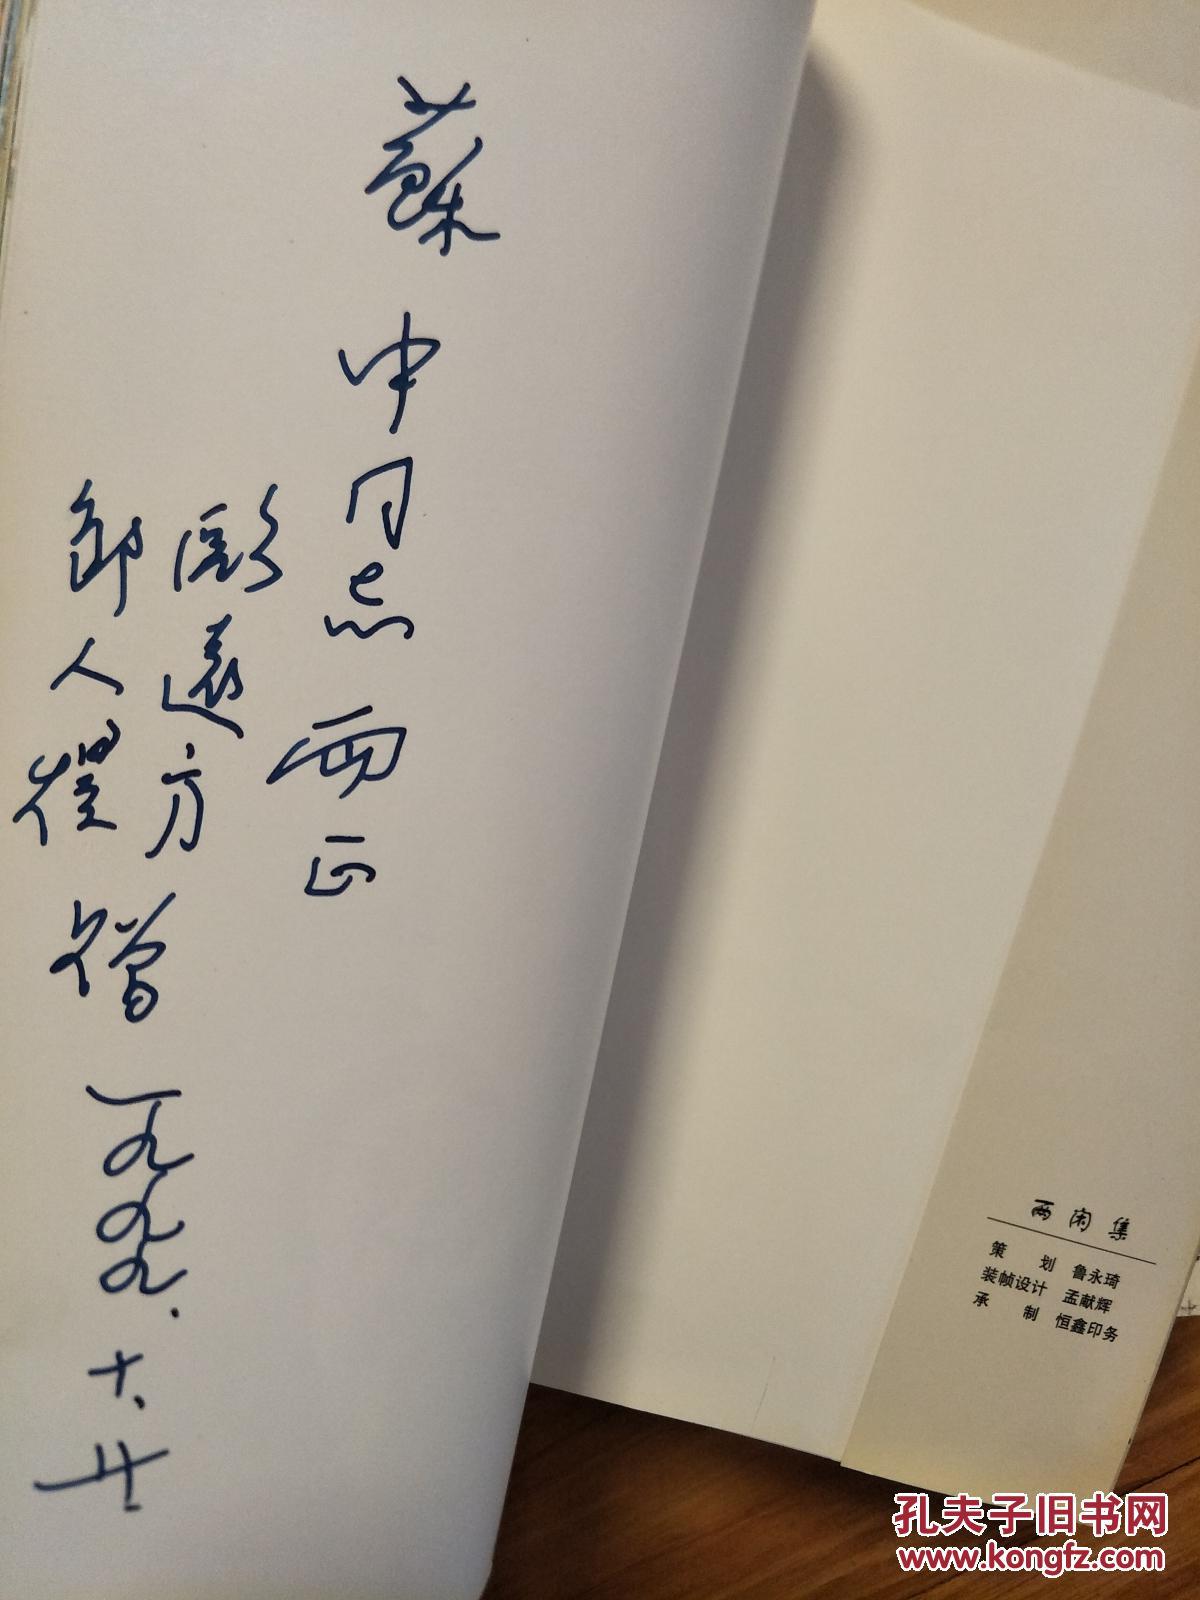 蘇中同志 两正
歐遠方
邹人煜 赠
一九九九.十、廿
两闲集
策 划 鲁永琦
装帧设计 孟献辉
承 制 恒鑫印务
孔夫子旧书网
www.kongfz.com